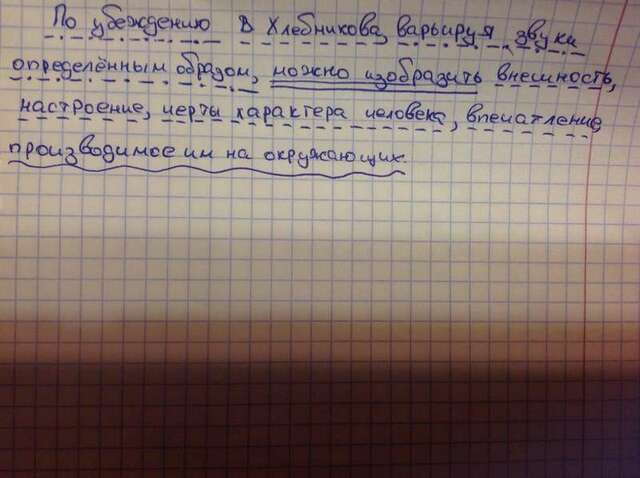 По убеждению В Хлебникова, варьируя звуки
определённым образом, можно изобразить внешность,
настроение, черты характера человека, впечатление
производимое им на окружающих.